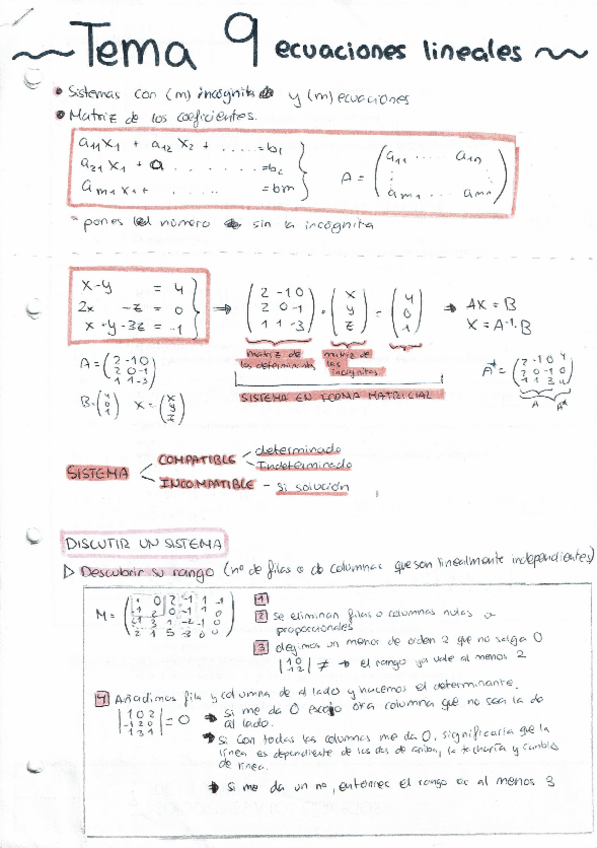 Tema 9 ecuaciones lineales
• Sistemas con (m) incógnitas y (m) ecuaciones
• Matriz de los coeficientes.
a11x1 + a12x2 + ..... = b1
a21x1 + a ....... = b2
am1x1 + ..... = bm
A = (a11 ..... a1n
⋮ ⋮
am1 ... amn)
pones el número sin la incógnita
x-y = 4
2x -z = 0
x+y-3z = -1
→ (2 -1 0
2 0 -1
1 1 -3) · (x
y
z) = (4
0
1) → AX = B
X = A⁻¹·B
matriz de los determinada
matriz de las incógnitas
SISTEMA EN FORMA MATRICIAL
A = (2 -1 0
2 0 -1
1 1 -3)
B = (4
0
1) X = (x
y
z)
A* = (2 -1 0 4
2 0 -1 0
1 1 3 4)
A A*
SISTEMA
COMPATIBLE
determinado
Indeterminado
INCOMPATIBLE - si solución
DISCUTIR UN SISTEMA
▷ Descubrir su rango (nº de filas o de columnas que son linealmente independientes)
M = (1 0 2 -1 1 -1
-1 2 0 -1 1 0
-1 3 1 -2 -1 0
2 1 5 -3 0 0)
1
2 se eliminan filas o columnas nulas o
proporcionales
3 elegimos un menor de orden 2 que no salga 0
|1 0
-1 2| ≠ → el rango ya vale al menos 2
4 Añadimos fila y columna de al lado y hacemos el determinante.
|1 0 2
-1 2 0
1 3 1| = 0
→ si me da 0 escojo otra columna que no sea la de
al lado.
→ si con todas las columnas me da 0, significaría que la
línea es dependiente de las dos de arriba, la tacharía y cambio
de línea.
→ si me da un no, entonces el rango es al menos 3